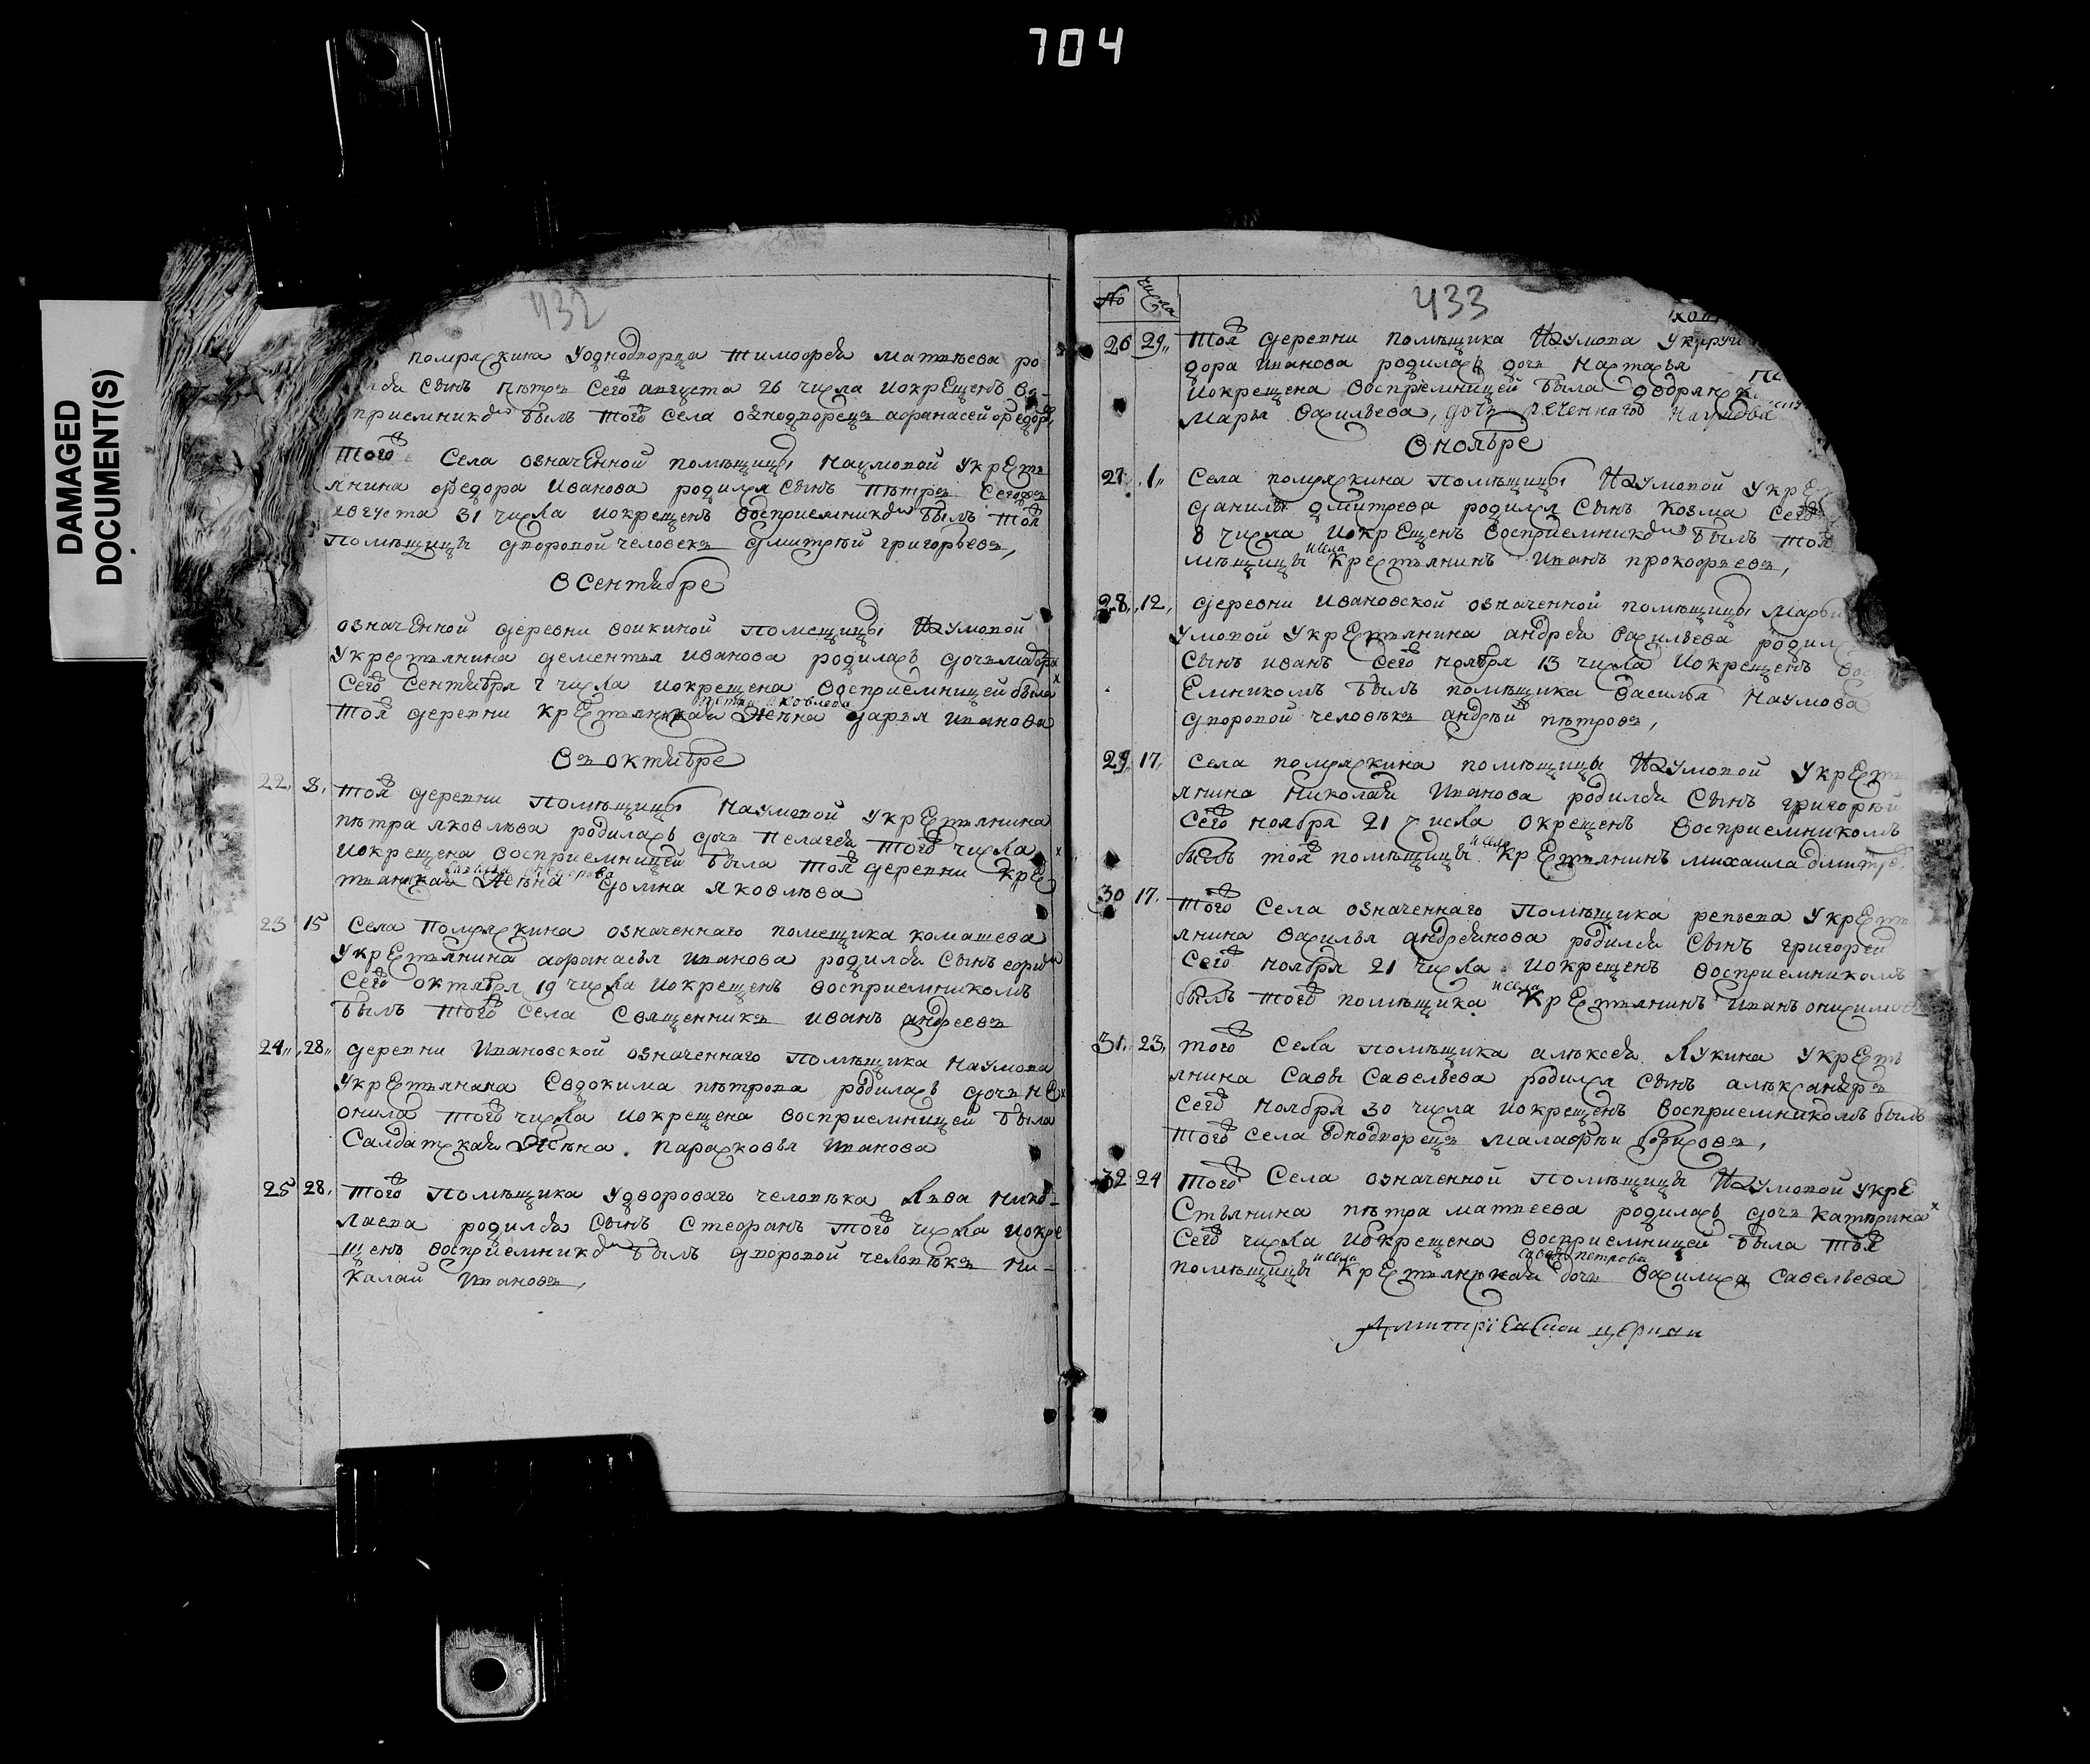 704
DAMAGED
DOCUMENT(S)
432
помряскина уоднодворца тимофея матвѣева ро
лся сынъ пѣтръ сего августа 26 числа иокрещенъ во-
приемникомъ былъ того села однодворецъ афанасей федоръ
того села означенной помѣщицы Наумовой укрестъ
янина федора иванова родился сынъ пѣтръ сегожъ
августа 31 числа иокрещенъ восприемникомъ былъ тоя
помѣщицы дворовой человекъ дмитрѣй григорьевъ,
В Сентябре
означенной деревни воикиной помещицы Наумовой
укрестьянина дементья иванова родилась дочь мавра
сего сентября 7 числа иокрещена восприемницей была
петра яковлева
тоя деревни крестьянская жена дарья иванова
Въ октябре
22. 8. тоя деревни помѣщицы Наумовой укрестьянина
пѣтра яковлѣва родилась дочь пелагея того числа
иокрещена восприемницей была тоя деревни крес
тьянская жена домна яковлѣва
23 15 Села помряскина означеннаго помещика комашева
укрестьянина афанасья иванова родился сынъ
сего октября 19 числа иокрещенъ восприемникомъ
былъ того села священникъ иванъ андреевъ
24,, 28,, деревни Ивановской означеннаго помѣщика наумова
укрестьянана Евдокима пѣтрова родилась дочь не
онила того числа иокрещена восприемницей была
салдатская жена парасковья иванова
25 28. того помѣщика удворового человѣка льва нико-
лаева родился сынъ стефанъ того числа иокре
щенъ восприемникомъ былъ дворовой человѣкъ ни-
калай ивановъ,
433
№ числа
26 29,, тоя деревни помѣщика Наумова укр
дора иванова родилась дочь настасья
иокрещена восприемницей была дворянс
марья васильева, дочь реченнаго наумова
В ноябре
27. 1,, Села помряскина помѣщицы Наумовой укре
данилы дмитрева родился сынъ козма сего
8 числа иокрещенъ восприемникомъ былъ тоя
исела
мѣщицы крестьянинъ иванъ прокофьевъ,
28. 12, деревни ивановской означенной помѣщицы марьи
умовой укрестьянина андрея васильева родил
сынъ иванъ сего ноября 13 числа иокрещенъ во
емникомъ былъ помѣщика василья наумова
дворовой человѣкъ андрѣй пѣтровъ,
29. 17. села помряскина помѣщицы Наумовой укрест
янина николая иванова родился сынъ григорѣй
сего ноября 21 числа окрещенъ восприемникомъ
исела
былъ тоя помѣщицы крестьянинъ михаила дмитре
30 17. того села означеннаго помѣщика репьева укрест
янина василья андреянова родился сынъ григорей
сего ноября 21 числа иокрещенъ восприемникомъ
исела
былъ того помѣщика крестьянинъ иванъ онисимо
31. 23. того села помѣщика алѣксея лукина укресть
янина савы савельева родился сынъ алѣксандръ
сего ноября 30 числа иокрещенъ восприемникомъ былъ
того села однодворецъ малафѣи
32 24 того села означенной помѣщицы Наумовой укре
стьянина пѣтра матвеева родилась дочь катѣрина
сего числа иокрещена восприемницей была тоя
исела савелья петрова
помѣщицы крестьянская дочь василиса савельева